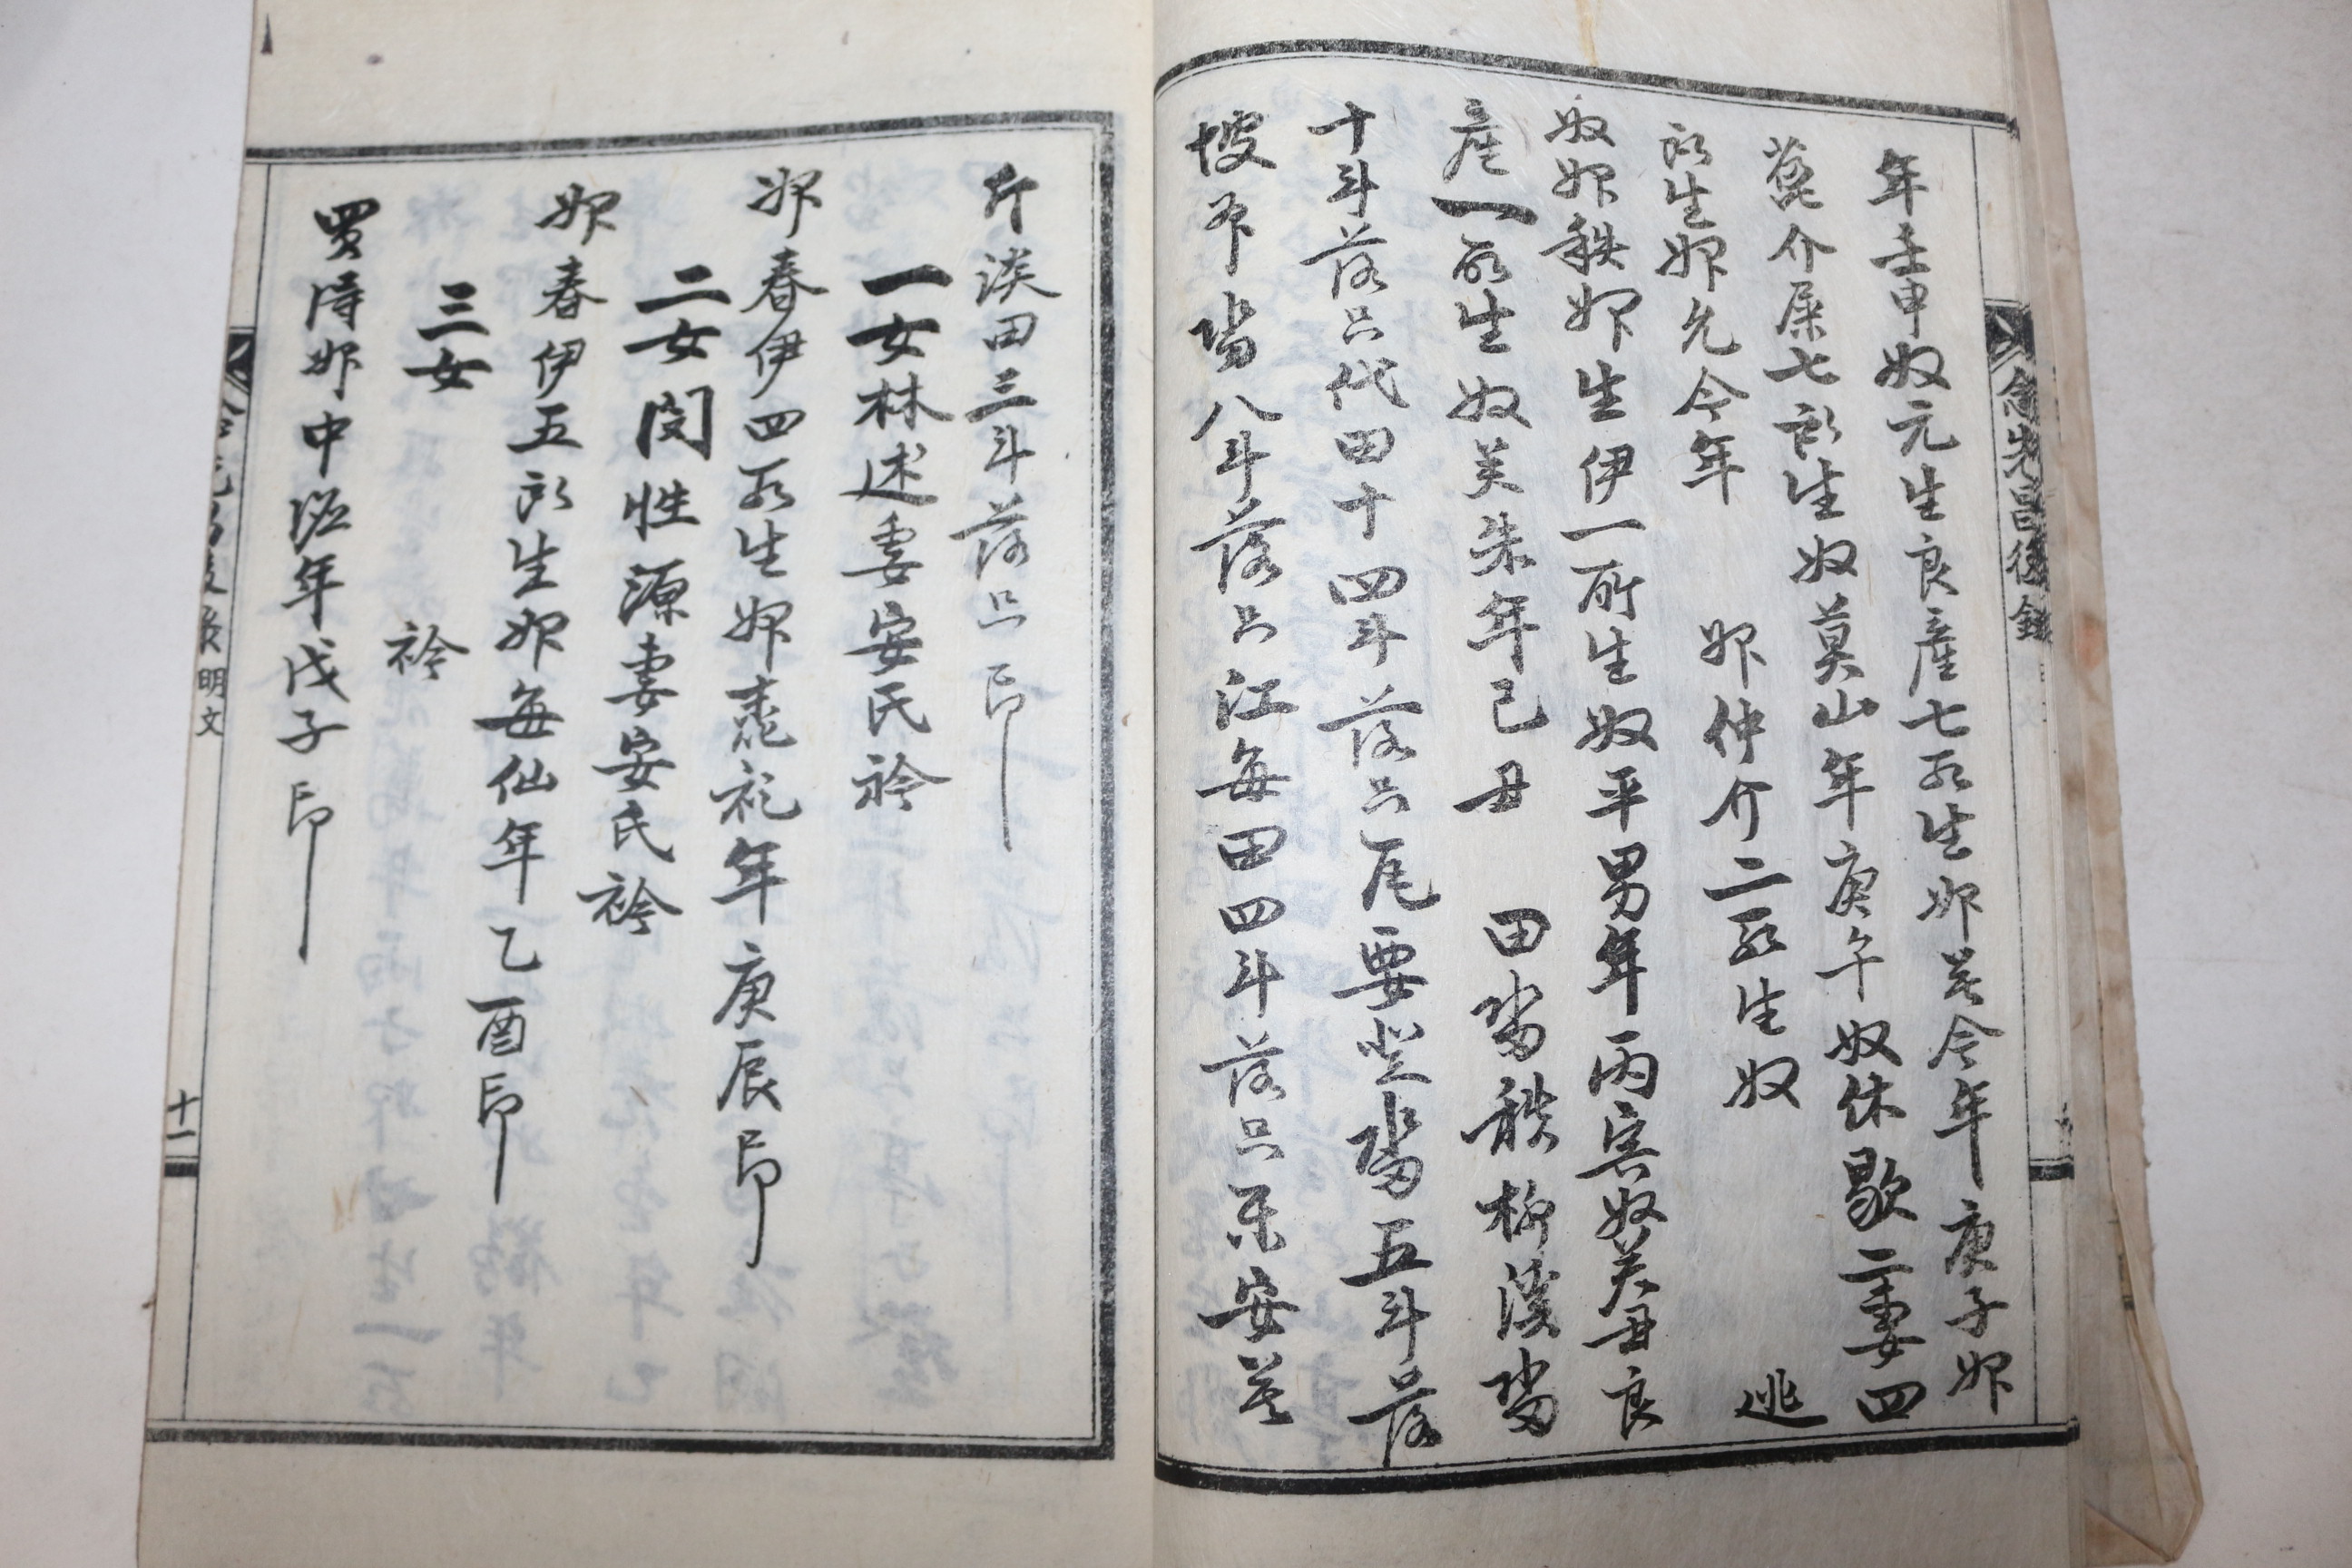 年壬申奴元生良産七所生婢今年庚子婢
介屎七所生奴莫山年庚午奴休歇二妻四
所生婢允今年 婢仲介二所生奴 逃
奴婢秩婢生伊一所生奴平男年丙寅奴美丑良
産一所生奴美朱年己丑 田畓秩柳溪畓
十斗落只代田十四斗落只尾要堂畓五斗落
坡下畓八斗落只江每田四斗落只安
溪田三斗落只印
一女林述妻安氏衿
婢春伊四所生婢年庚辰印
二女閔性源妻安氏衿
婢春伊五所生婢每仙年乙酉印
三女 衿
買得婢中年戊子印
先後錄
明文
十一